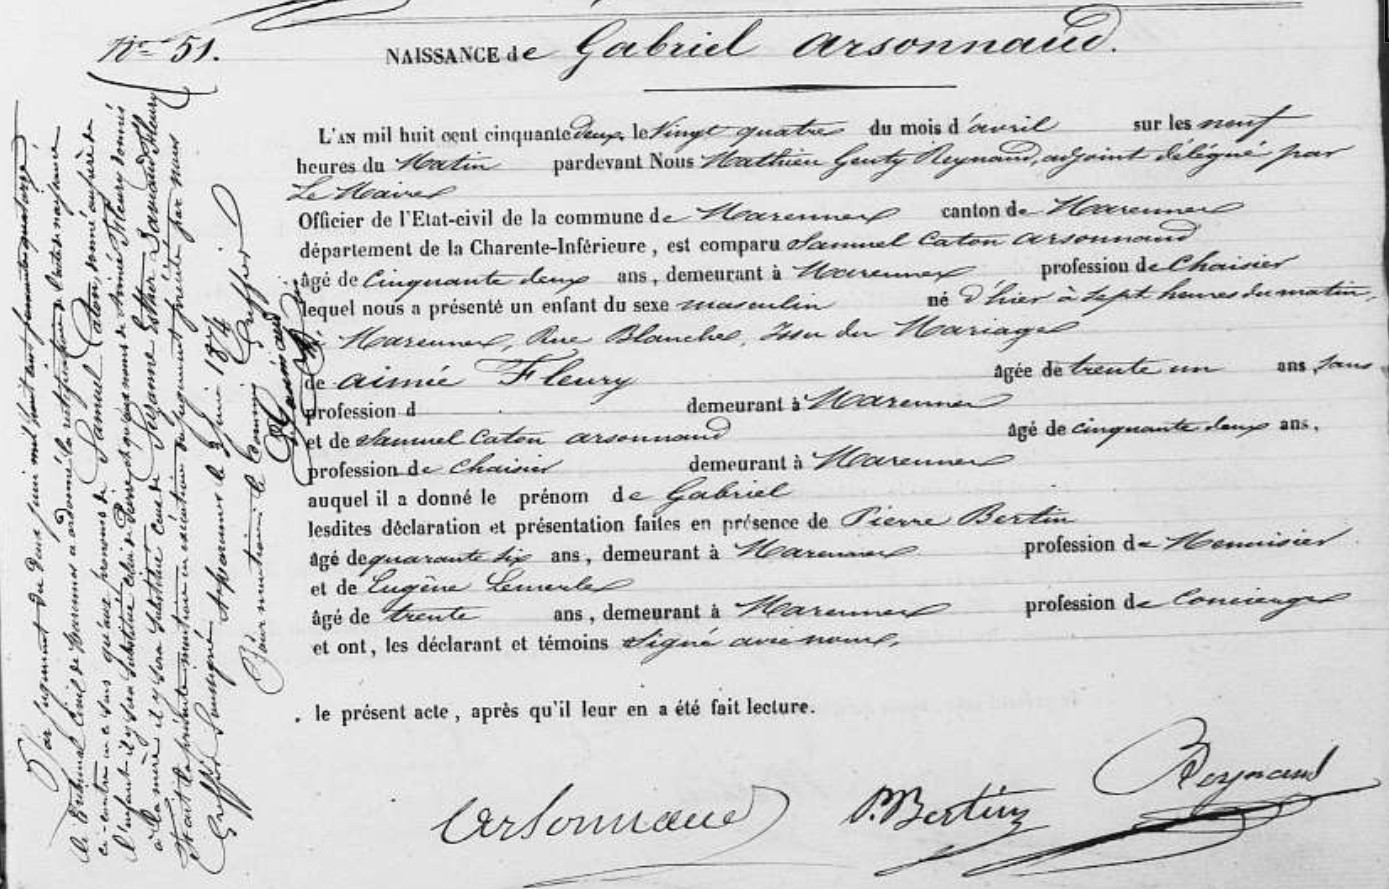 N° 51.
NAISSANCE de Gabriel Arsonnaud.
L'AN mil huit cent cinquante deux, le Vingt quatre du mois d'avril sur les neuf
heures du Matin pardevant Nous Mathieu Genty Reynaud, adjoint délégué par
Le Maire
Officier de l'Etat-civil de la commune de Marennes canton de Marennes
département de la Charente-Inférieure, est comparu Samuel Caton Arsonnaud
âgé de Cinquante deux ans, demeurant à Marennes profession de Chaisier
lequel nous a présenté un enfant du sexe masculin né d'hier à sept heures du matin,
à Marennes, Rue Blanche, Issu du Mariage
de aimée Fleury âgée de trente un ans, sans
profession d demeurant à Marennes
et de Samuel Caton arsonnaud âgé de cinquante deux ans,
profession de chaisier demeurant à Marennes
auquel il a donné le prénom de Gabriel
lesdites déclaration et présentation faites en présence de Pierre Bertin
âgé de quarante six ans, demeurant à Marennes profession de Menuisier
et de Eugène Lemerle
âgé de trente ans, demeurant à Marennes profession de Concierge
et ont, les déclarant et témoins signé avec nous,
le présent acte, après qu'il leur en a été fait lecture.
Arsonnaud P. Bertin Reynaud
Par jugement du deux juin mil huit cent soixante quatorze
le Tribunal Civil de Marennes a ordonné la rectification de l'acte de naissance
ci-contre en ce sens qu'aux prénoms de Samuel Caton, donné au père de
l'enfant il y sera substitué celui de Pierre et qu'aux noms de Aimée Fleury donnés
à la mère il y sera substitué ceux de Suzanne Esther Samaud Fleury
Fait la présente mention en exécution du jugement précité par nous
Greffier soussigné Marennes le 3 Juin 1874
Pour mention: le Commis Greffier